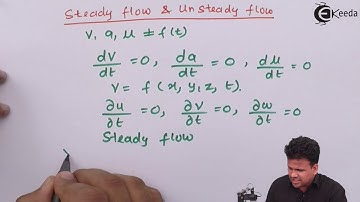 Steady flow & Unsteady flow
Ekeeda
V, a, μ ≠ f(t)
dv/dt = 0, da/dt = 0, dμ/dt = 0
V = f(x, y, z, t).
∂u/∂t = 0, ∂v/∂t = 0, ∂w/∂t = 0
Steady flow